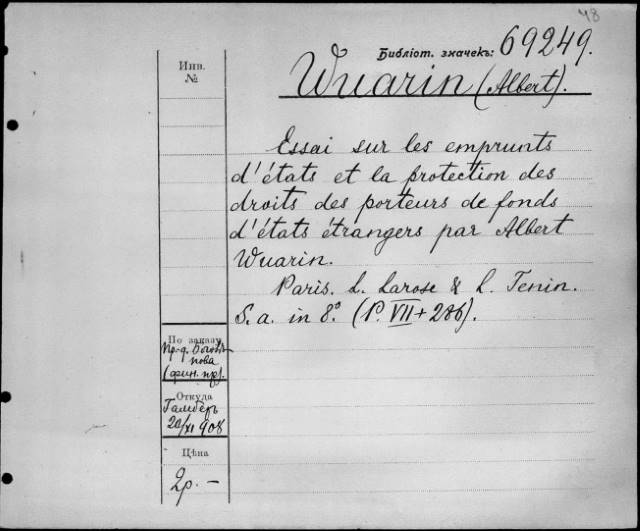 48
Библіот. значекъ: 69249.
Инв.
№
Wuarin (Albert).
Essai sur les emprunts
d'états et la protection des
droits des porteurs de fonds
d'états étrangers par Albert
Wuarin.
Paris. L. Larose & L. Tenin.
S. a. in 8.° (P. VII + 286).
По заказу
Пр-ф.
нова
(фин. пр).
Откуда
Гамберъ
20/XI 908
Цѣна
2р. –